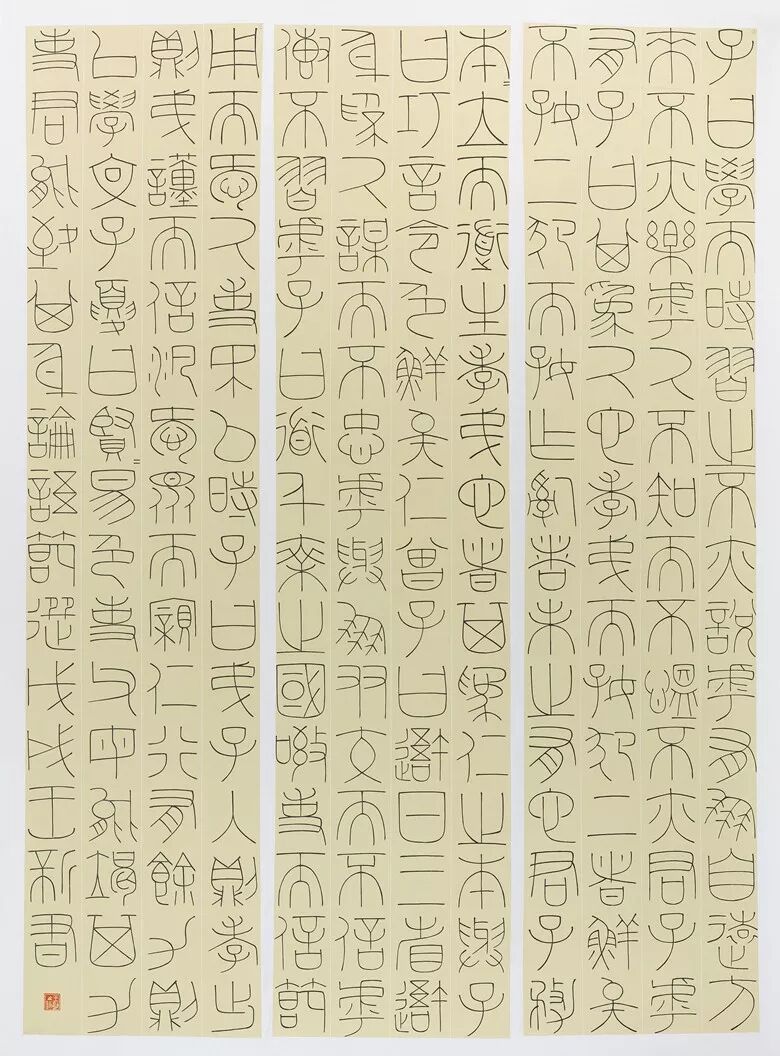 子曰學而時習之不亦說乎有朋自遠方
來不亦樂乎人不知而不慍不亦君子乎
有子曰其為人也孝弟而好犯上者鮮矣
不好上犯而好作亂者未之有也君子務
本立而道生孝弟也者其為仁之本與子
曰巧言令色鮮矣仁曾子曰吾日三省吾
身為人謀而不忠乎與朋友交而不信乎
傳不習乎子曰道千乘之國敬事而信節
用而愛人使民以時子曰弟子入則孝出
則弟謹而信汎愛眾而親仁行有餘力則
以學文子夏曰賢賢易色事父母能竭其力
事君能致其身論語節選戊戌王新書